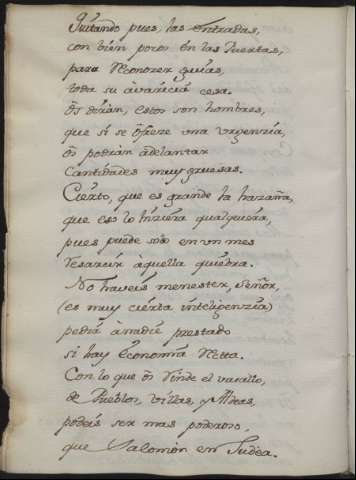 Quitando pues, las entradas,
con bien poco en las Puertas,
para reconozer guias,
toda su avaricia cesa.
Os dirian, estos son hombres,
que si se ofreze una urgenzia,
os podrian adelantar
cantidades muy gruesas.
Cierto, que es grande la hazaña,
que eso lo hiziera qualquiera,
pues puede solo en un mes
resarcir aquella quiebra.
No haveis menester, Señor,
(es muy cierta inteligenzia)
pedir à nadie prestado
si hay economia recta.
Con lo que os rinde el vasallo,
de Pueblos, Villas, y Aldeas,
podeis ser mas poderoso,
que Salomon en Judèa.